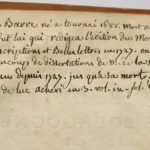 Barre né a tournai 1688. Mort a
lui qui redigea l'édition du Mo
scriptions et Belles lettres en 1727. on
de dissertations de M. de la
depuis 1727. jus qu'a sa mort
de luc acheri en 3. vol. in-fol.